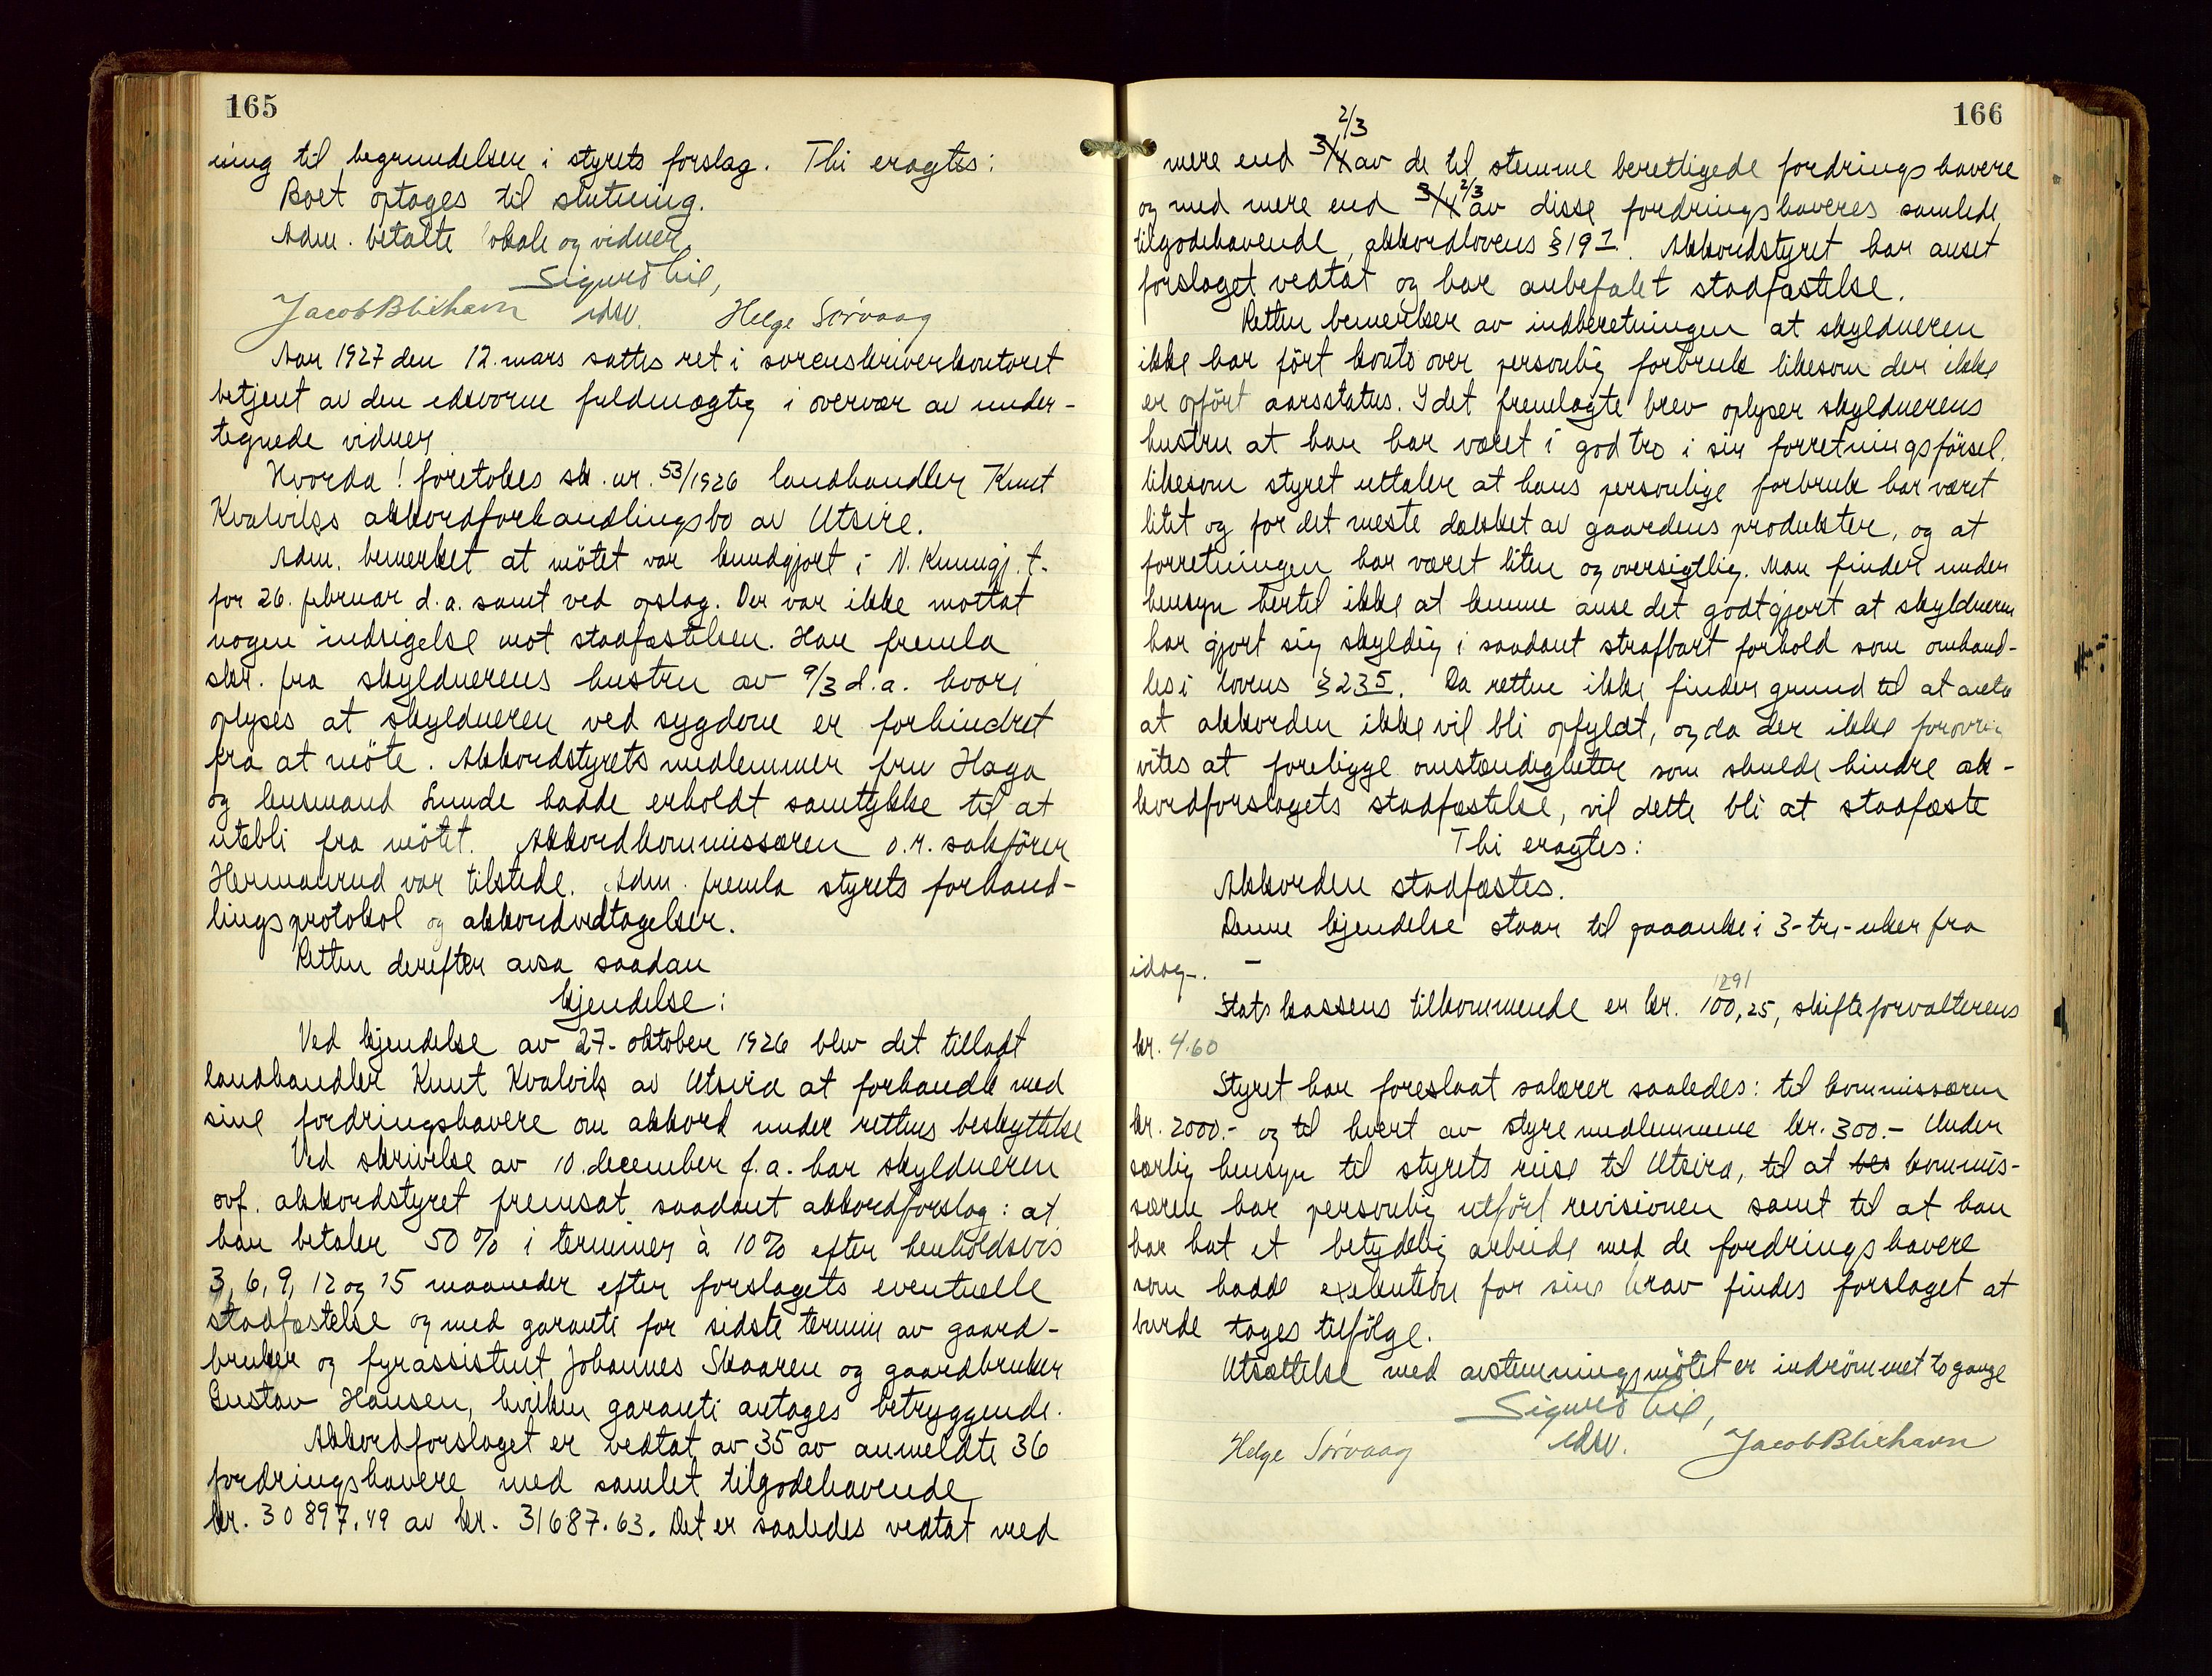 165
ning til begrundelsen i styrets forslag. Thi eragtes:
Boet optages til slutning.
Adm. betalte lokale og vidner.
Sigurd
Jacob Blixhavn edsv. Helge Sørvaag
Aar 1927 den 12. mars sattes ret i sorenskriverkontoret
betjent av den edsvorne fuldmægtig i overvær av under-
tegnede vidner
Hvorda! foretokes sk. nr. 53/1926 landhandler Knut
Kvalviks akkordforhandlingsbo av Utsire.
Adm. bemerket at møtet var kundgjort i N. Kunngj. t.
for 26. februar d.a. samt ved opslag. Der var ikke mottat
nogen indsigelse mot stadfæstelsen. Han fremla
skr. fra skyldnerens hustru av 9/3 d.a. hvori
oplyses at skyldneren ved sygdom er forhindret
fra at møte. Akkordstyrets medlemmer fru Haga
og lensmand Lunde hadde erholdt samtykke til at
utebli fra møtet. Akkordkommissæren o.r. sakfører
Hermanrud var tilstede. Adm. fremla styrets forhand-
lingsprotokol og akkordvedtagelser.
Retten derefter avsa saadan
kjendelse:
Ved kjendelse av 27. oktober 1926 blev det tilladt
landhandler Knut Kvalvik av Utsira at forhandle med
sine fordringshavere om akkord under rettens beskyttelse
Ved skrivelse av 10. december f.a. har skyldneren
ovf. akkordstyret fremsat saadant akkordforslag: at
han betaler 50 % i terminer à 10 % efter henholdsvis
3, 6, 9, 12 og 15 maaneder efter forslagets eventuelle
stadfæstelse og med garanti for sidste termin av gaard-
bruker og fyrassistent Johannes Skaaren og gaardbruker
Gustav Hansen, hvilken garanti antages betryggende.
Akkordforslaget er vedtat av 35 av anmeldte 36
fordringshavere med samlet tilgodehavende
kr. 30897.49 av kr. 31687.63. Det er saaledes vedtat med
166
2/3
mere end 3/4 av de til stemme berettigede fordringshavere
og med mere end 3/4 2/3 av disse fordringshaveres samlede
tilgodehavende, akkordlovens § 19 1. Akkordstyret har anset
forslaget vedtat og har anbefalet stadfæstelse.
Retten bemerker av indberetningen at skyldneren
ikke har ført konto over personlig forbruk likesom der ikke
er opført aarsstatus. I det fremlagte brev oplyser skyldnerens
hustru at han har været i god tro i sin forretningsførsel.
likesom styret uttaler at hans personlige forbruk har været
litet og for det meste dækket av gaardens produkter, og at
forretningen har været liten og oversigtlig. Man finder under
hensyn hertil ikke at kunne anse det godtgjort at skyldneren
har gjort sig skyldig i saadant strafbart forhold som omhand-
les i lovens § 23 5. Da retten ikke finder grund til at anta
at akkorden ikke vil bli opfyldt, og da der ikke forøvrig
vites at foreligge omstændigheter som skulde hindre ak-
kordforslagets stadfæstelse, vil dette bli at stadfæste
Thi eragtes:
Akkorden stadfæstes.
Denne kjendelse staar til paaanke i 3-tre-uker fra
idag-. -
1291
Statskassens tilkommende er kr. 100,25, skifteforvalterens
kr. 4.60
Styret har foreslaat salærer saaledes: til kommissæren
kr. 2000.- og til hvert av styremedlemmene kr. 300.- Under
særlig hensyn til styrets reise til Utsira, til at bes kommis-
særen har personlig utført revisionen samt til at han
har hat et betydelig arbeide med de fordringshavere
som hadde exekution for sine krav findes forslaget at
burde tages tilfølge.
Utsættelse med avstemningsmøtet er indrømmet to gange
Sigurd
Helge Sørvaag edsv. Jacob Blixhavn